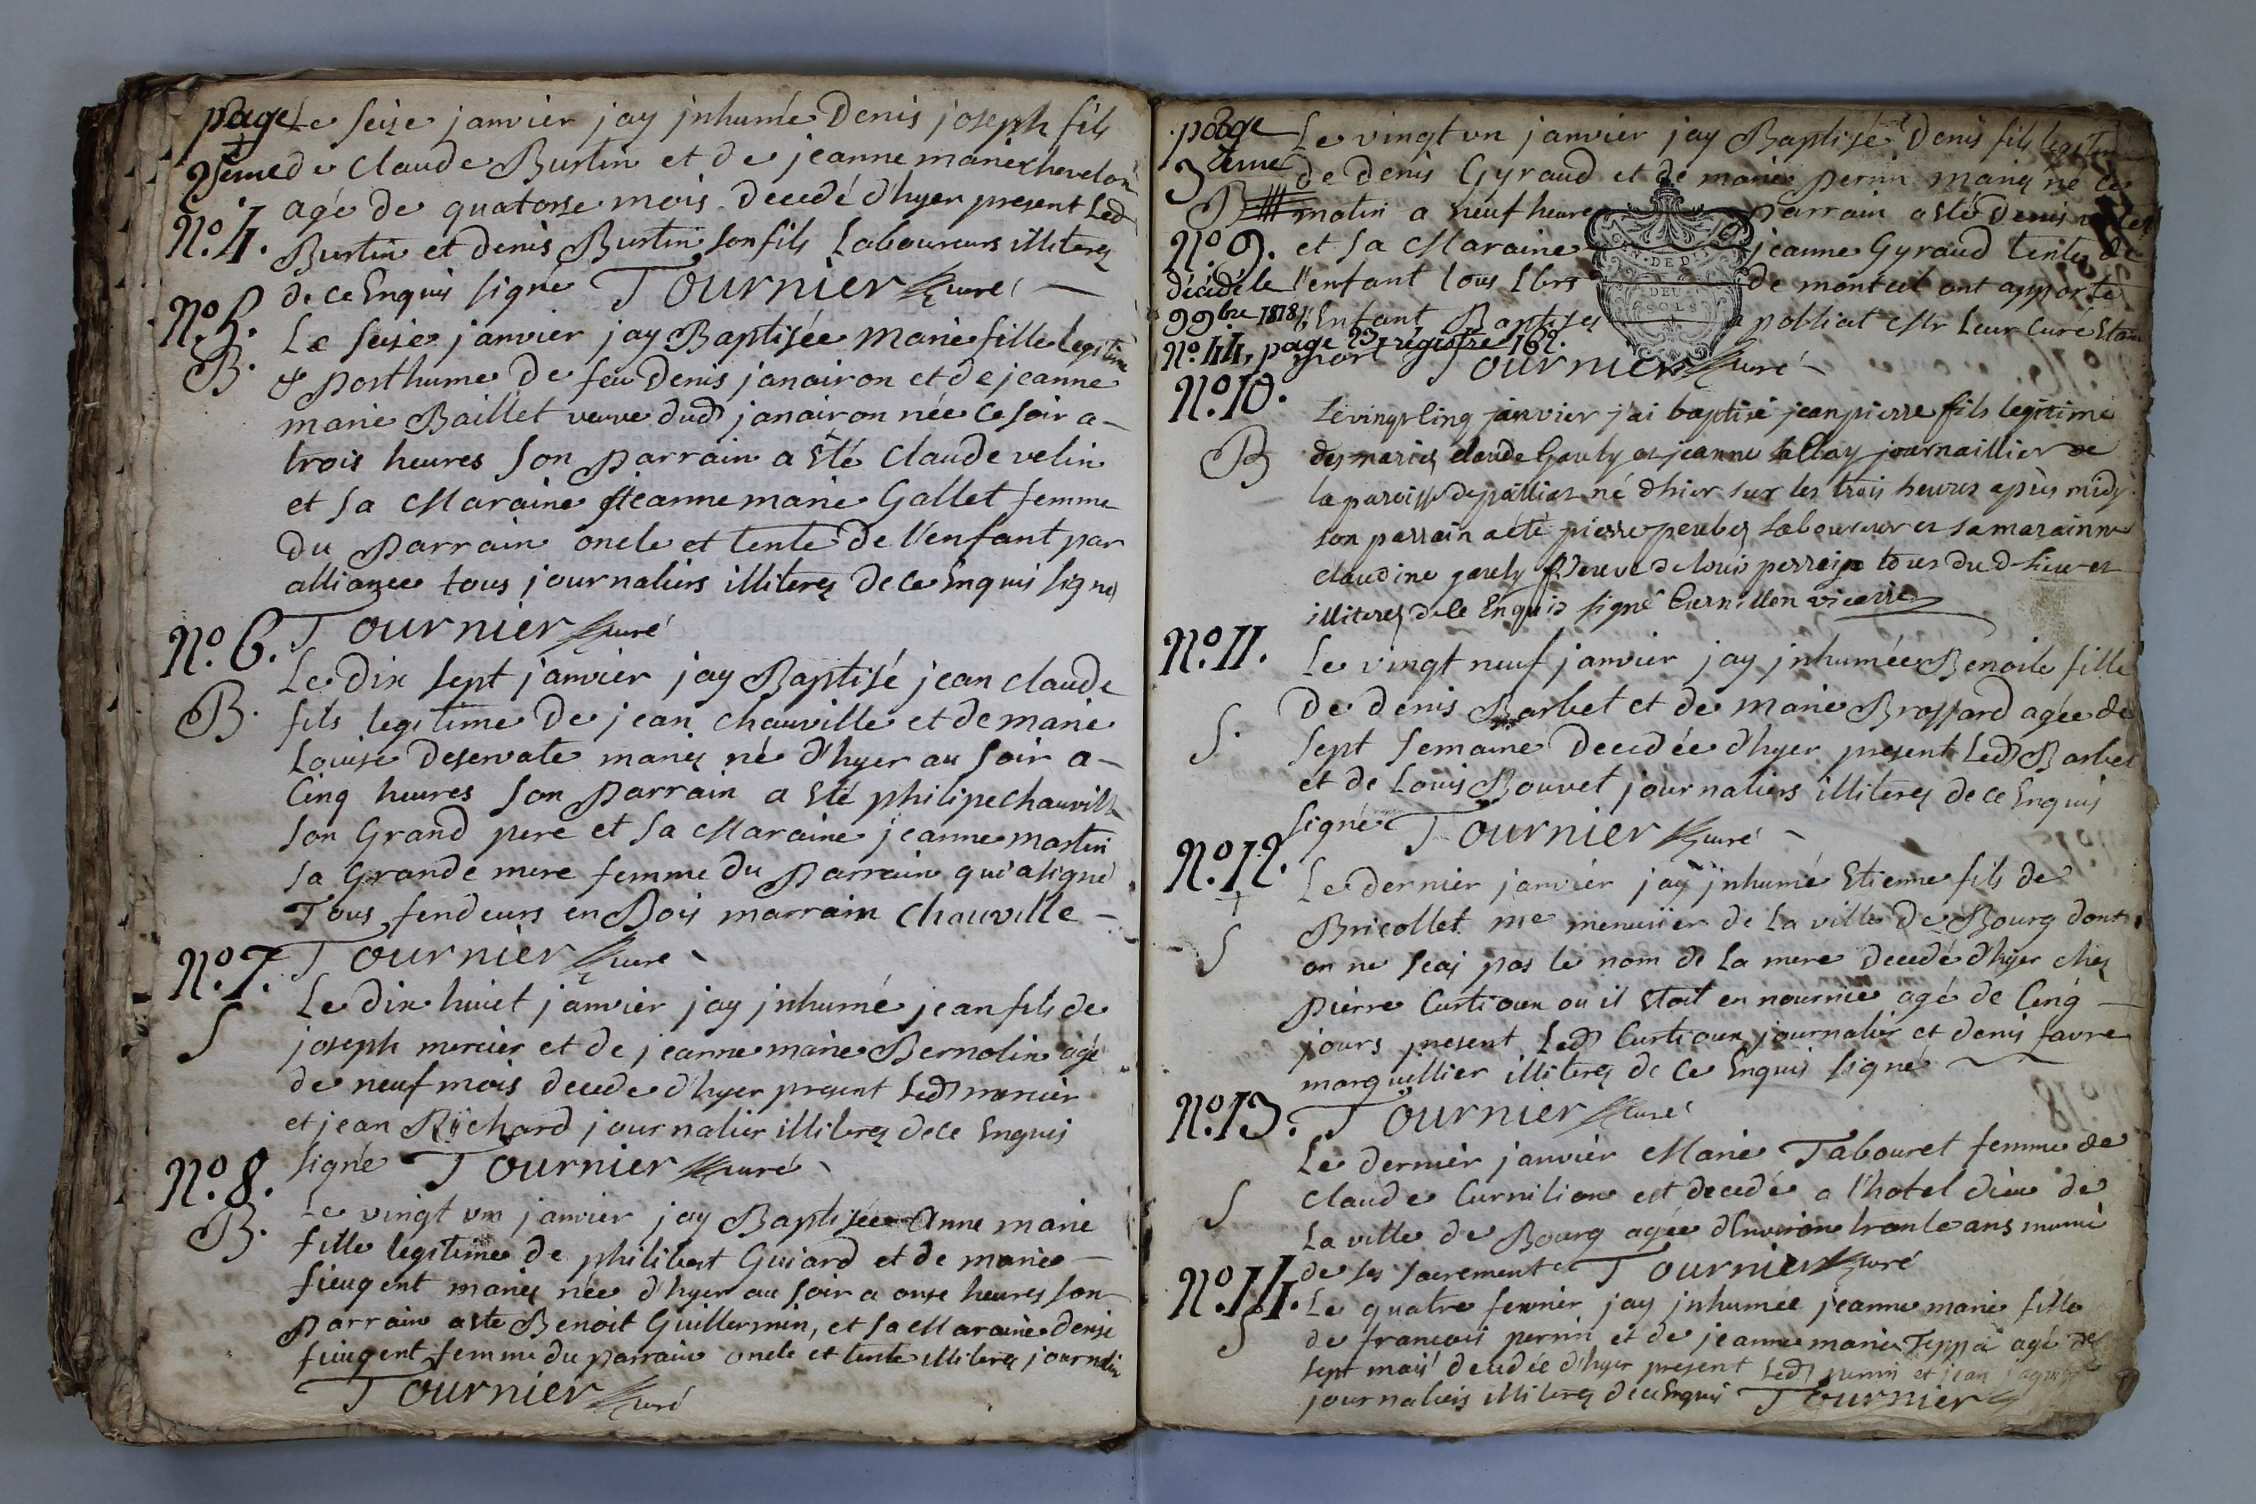 page
2eme
Le seise janvier jay jnhumé Denis joseph fils
de Claude Burtin et de jeanne marie chevelon
N.º 4.
agé de quatorse mois decedé d'hyer present Led
Burtin et denis Burtin son fils Laboureurs illiterez
de ce Enquis signé Tournier curé
N.º 5.
B.
Le seise janvier jay Baptisée marie fille legitime
& posthume de feu Denis janairon et de jeanne
marie Baillet veuve dud janairon née ce soir a
trois heures son parrain a Eté claude velin
et sa Maraine jeanne marie Gallet femme
du Parrain oncle et tente de l'enfant par
alliance tous journaliers illiterez de ce Enquis signé
Tournier curé
N.º 6.
B.
Le dix sept janvier jay Baptisé jean claude
fils legitime de jean chauville et de marie
Louise deservate mariez né d'hyer au soir a
Cinq heures son Parrain a Eté philipe chauville
son Grand pere et sa Maraine jeanne martin
sa Grande mere femme du Parrain qui a signé
Tous fendeurs en Bois marrain chauville
Tournier curé
N.º 7.
S
Le dix huict janvier jay jnhumé jean fils de
joseph mercier et de jeanne marie Bernolin agé
de neuf mois decede d'hyer present Led mercier
et jean Richard journalier illiterez de ce Enquis
signé Tournier curé
N.º 8.
B.
Le vingt un janvier jay Baptisée Anne marie
fille legitime de philibert Guiard et de marie
fieugent mariez née d'hyer au soir a onse heures son
Parrain a eté Benoit Guillermin, et sa Maraine denise
fieugent femme du parrain oncle et tente illiterez journalier
Tournier curé
page
3eme
Le vingt un janvier jay Baptisé Denis fils legitime
de denis Gyraud et de marie perrin mariez né ce
B
matin a neuf heures parrain a eté Denis
N.º 9.
et sa Maraine jeanne Gyraud tente de
décédé le
l'enfant tous de montcet ont apporté
9 9bre 1818
l'Enfant Baptiser a polliat Mr leur Curé Etant
Nº 44, page 23, registre 162.
mort Tournier curé
N.º 10.
B
Le vingt cinq janvier j'ai baptisé jean pierre fils legitime
des mariez claude Gauly et jeanne tallay journaillier de
la paroisse de polliat né d'hier sur les trois heures après midy
son parrain a été pierre peuber laboureur et sa marainne
claudine gauly veuve de louis perrein tous du d. lieu et
illiterez de ce Enquis signé Curnillon vicaire
N.º 11.
S.
Le vingt neuf janvier jay jnhumée Benoite fille
De denis Barbet et de marie Brossard agée de
sept semaine decedée d'hyer present Led Barbet
et de Louis Bouvet journaliers illiterez de ce Enquis
signé Tournier curé
N.º 12.
S
Le dernier janvier jay jnhumé Etienne fils de
Bricollet me menusier de la ville de Bourg dont
on ne scaj pas le nom de la mere decedé d'hyer chez
pierre Curtioux ou il Etoit en nourrice agé de Cinq
jours present Led Curtioux journalier et denis favre
marguillier illiterez de ce Enquis signé
Tournier curé
N.º 13.
S
Le dernier janvier Marie Tabouret femme de
claude Curnilion est decedé a l'hotel dieu de
La ville de Bourg agée d'Environ trente ans munie
de ses sacrements Tournier curé
N.º 14.
S
Le quatre fevrier jay jnhumée jeanne marie fille
de francois perrin et de jeanne marie Teppa agé de
sept mois decedée d'hyer present Led perrin et jean
journaliers illiterez de ce Enquis Tournier